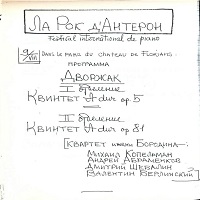 Ла Рок д'Антерон
Festival international de piano
9/VIII Dans le parc du chateau de Florans
программа
Дворжак
I отделение
Квинтет A dur op 5
II отделение
Квинтет A dur op 81
Квартет имени Бородина
Михаил Копельман
Андрей Абраменков
Дмитрий Шебалин
Валентин Берлинский